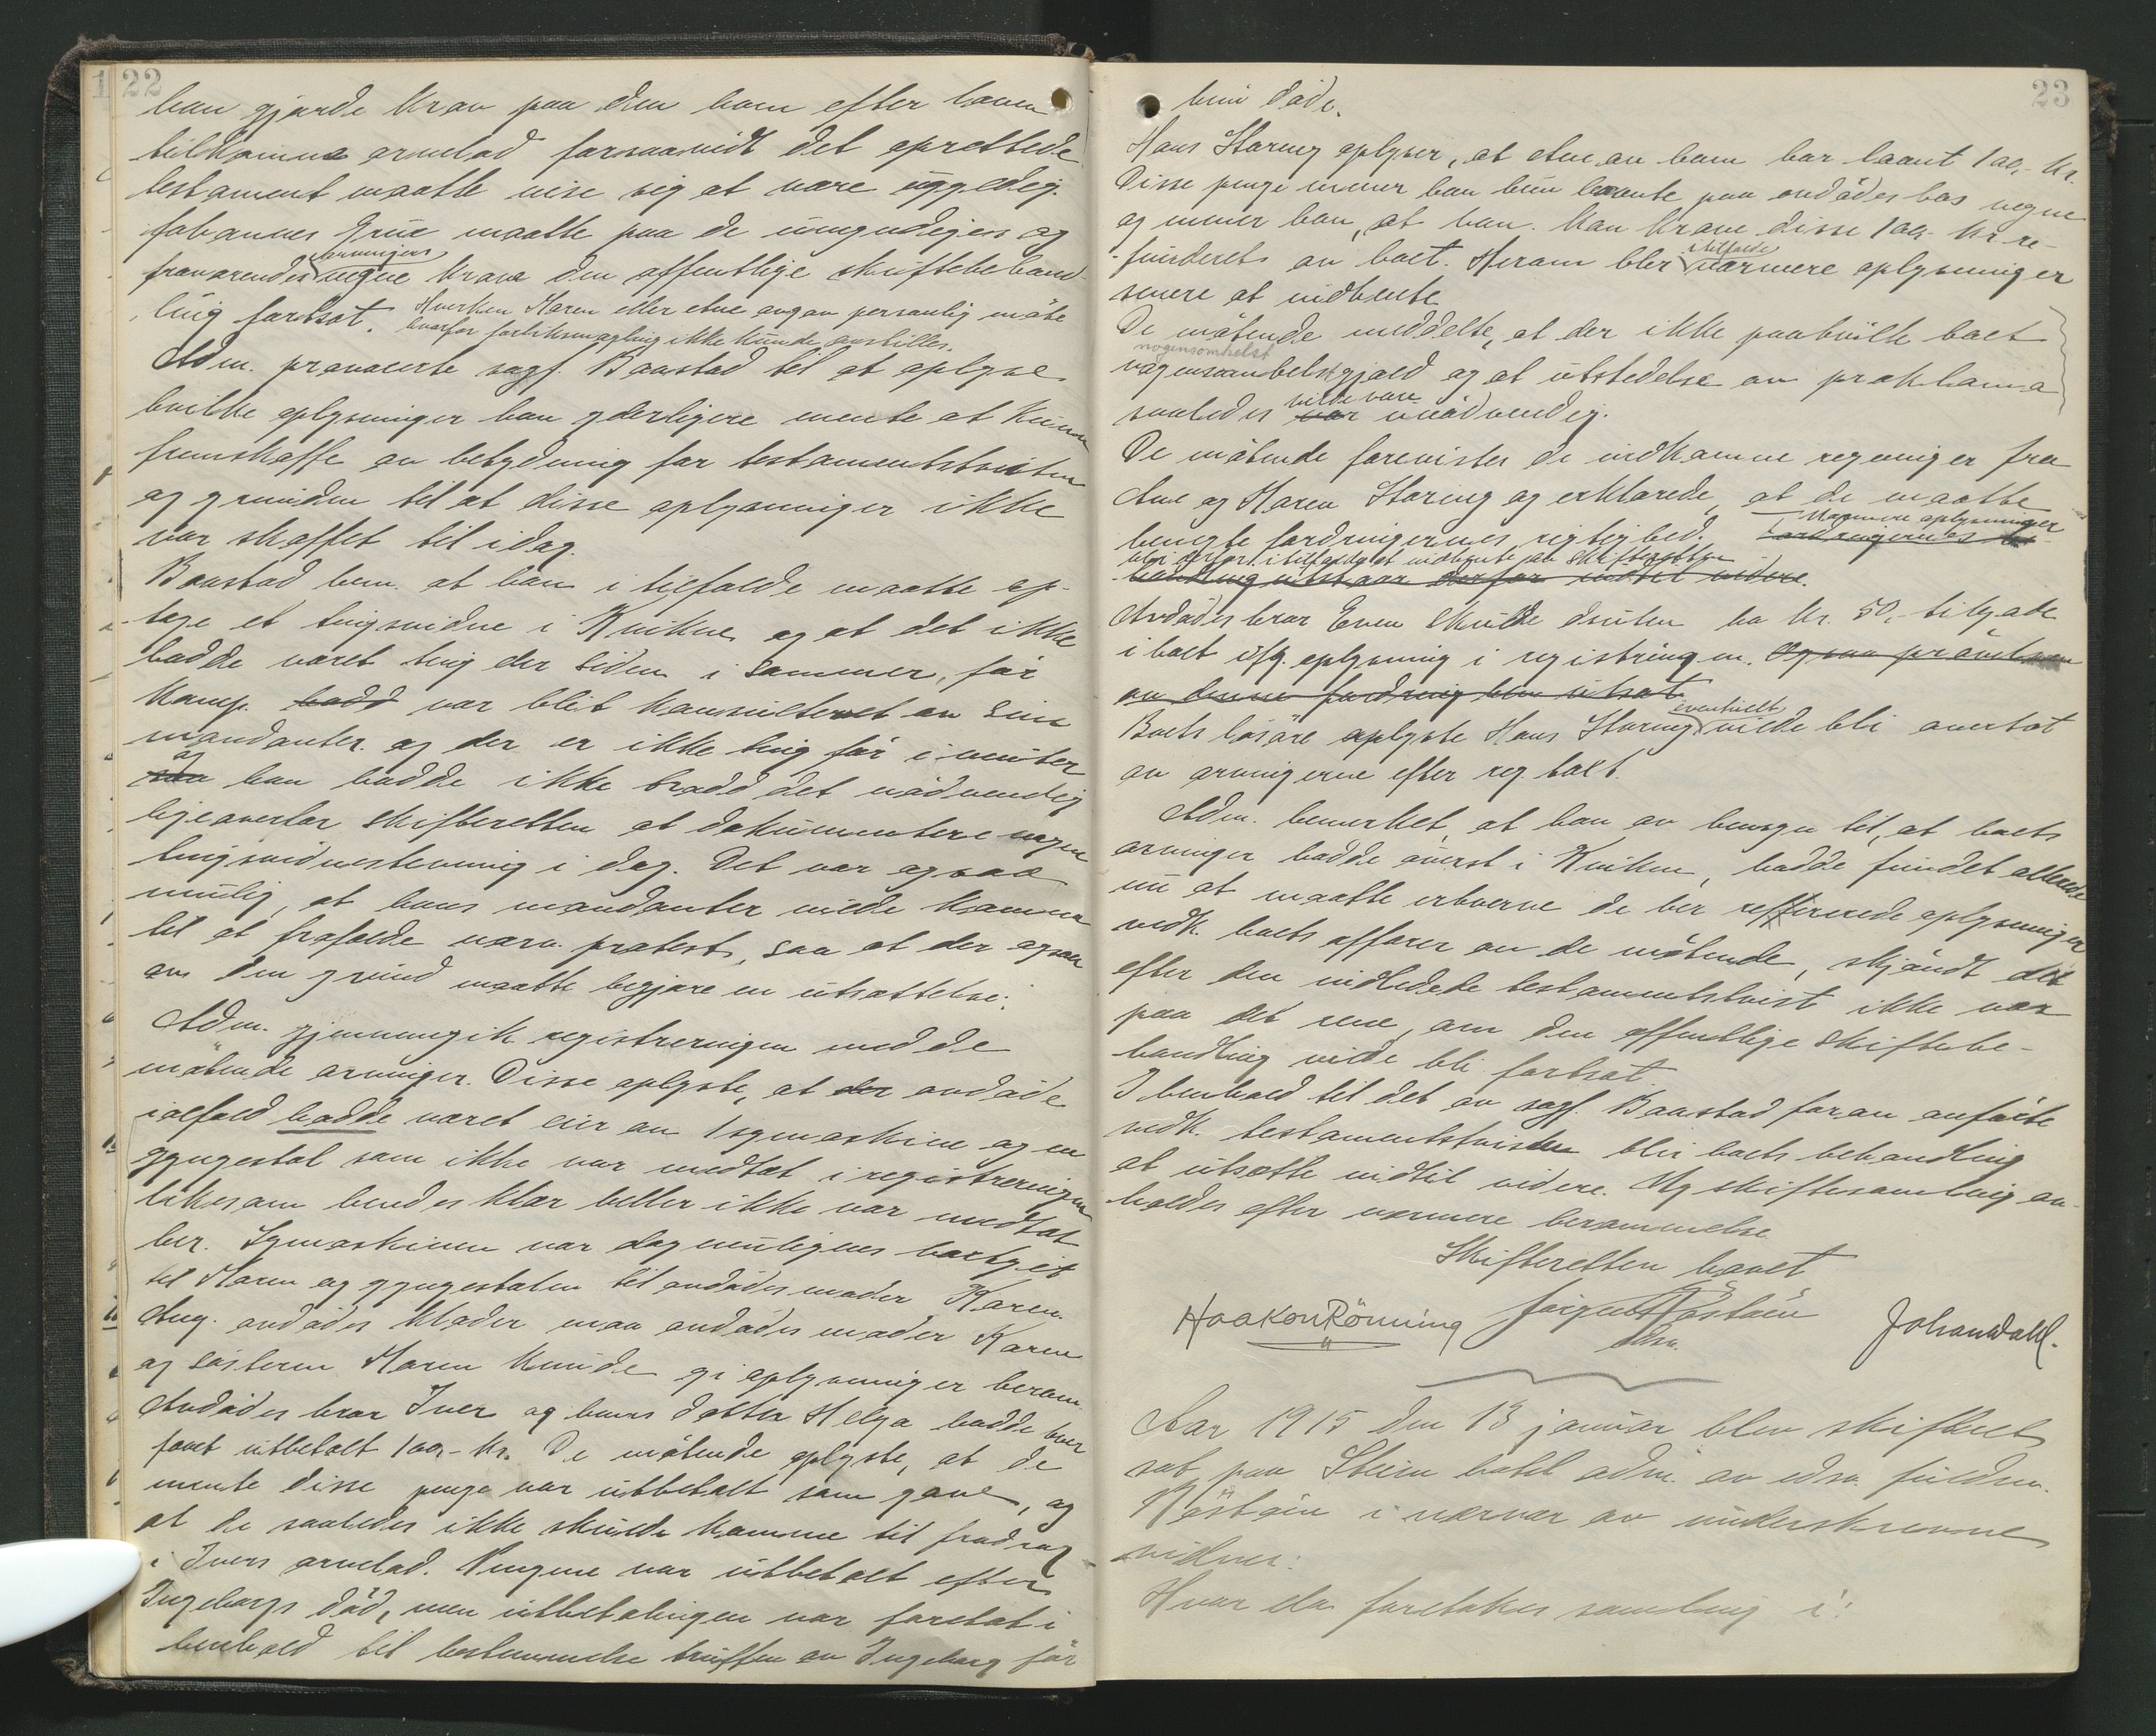 22
han gjorde krav paa den ham efter loven
tilkomne arvelod forsaavidt det oprettede
testament maatte vise sig at være ugyldig.
Johannes Grue maatte paa de umyndiges og
fraværendes arvingers vegne kreve den offentlige skiftebehand-
ling fortsat. Hverken Maren eller Ane avgav personlig møte
hvorfor forliksmægling ikke kunde anstilles.
Adm. provocerte sagf. Baastad til at oplyse
hvilke oplysninger han yderligere mente at kunne
fremskaffe av betydning for testamentstvisten
og grunden til at disse oplysninger ikke
var skaffet til idag.
Baastad bem. at han i tilfælde maatte op-
tage et tingsvidne i Kvikne og at det ikke
hadde været ting der siden i sommer, før
Komp. hadd var blit konsulteret av sine
mandanter og der er ikke ting før i vinter
saa og han hadde ikke trodd det nødvendig
ligeoverfor skifteretten at dokumentere nogen
tingsvidnestevning i dag. Det var ogsaa
mulig, at hans mandanter vilde komme
til at frafalde nærv. protest, saa at der ogsaa
av den grund maatte begjære en utsættelse.
Adm. gjennemgik registreringen med de
møtende arvinger. Disse oplyste, at der avdøde
ialfald hadde været eier av 1 symaskine og en
gyngestol som ikke var medtat i registreringen
likesom hendes klær heller ikke var medtat
her. Symaskinen var dog muligens bortgit
til Maren og gyngestolen til avdødes moder Karen.
Ang. avdødes klæder maa avdødes moder Karen
og søsteren Maren kunde gi oplysninger herom.
Avdødes bror Iver og hans datter Helga hadde hver
faaet utbetalt 100,- kr. De møtende oplyste, at de
mente disse penge var utbetalt som gave, og
at de saaledes ikke skulde komme til fradrag
i Ivers arvelod. Pengene var utbetalt efter
Ingeborgs død, men utbetalingen var foretat i
henhold til bestemmelse truffen av Ingeborg før
23
hun døde.
Hans Storeng oplyser, at Ane av ham har laant 100,- kr.
Disse penge mener han hun laante paa avdødes bos vegne
og mener han, at han kan kræve disse 100,- kr. re-
funderet av boet. Herom blir i tilfælde nærmere oplysninger
senere at indhente.
De møtende meddelte, at der ikke paahvilte boet
nogensomhelst
nogensomhelst gjæld og at utstedelse av proklama
saaledes var vilde være unødvendig.
De møtende forevistes de indkomne regninger fra
Ane og Maren Storeng og erklærede, at de maatte
benegte fordringernes rigtighed. Nærmere oplysninger
fordringernes be
blir derfor i tilfælde at indhente av skifteretten
handling utstaar derfor indtil videre.
Avdødes bror Even skulde desuten ha kr. 50,- tilgode
i boet ifg. oplysning i registringen. Ogsaa prøvelsen
av denne fordring blev utsat
Boets løsøre oplyste Hans Storeng eventuelt vilde bli overtat
av arvingerne efter reg. takt.
Adm. bemerket, at han av hensyn til, at boets
arvinger hadde øverst i Kvikne, hadde fundet allerede
nu at maatte erhverve de her refererede oplysninger
vedk. boets affærer av de møtende, skjøndt det
efter den indledede testamentstvist ikke var
paa det rene, om den offentlige skiftebe-
handling vilde bli fortsat.
I henhold til det av sagf. Baastad foran anførte
vedk. testamentstvisten blir boets behandling
at utsætte indtil videre. Ny skiftesamling an-
holdes efter nærmere berammelse.
Skifteretten hævet
Haakon Rönning
Johan Dahl.
Aar 1915 den 13 januar blev skifteret
sat paa Steien hotel adm. av edsv. fuldm.
Røstøen i nærvær av underskrevne
vidner:
Hvor da foretokes samling i: